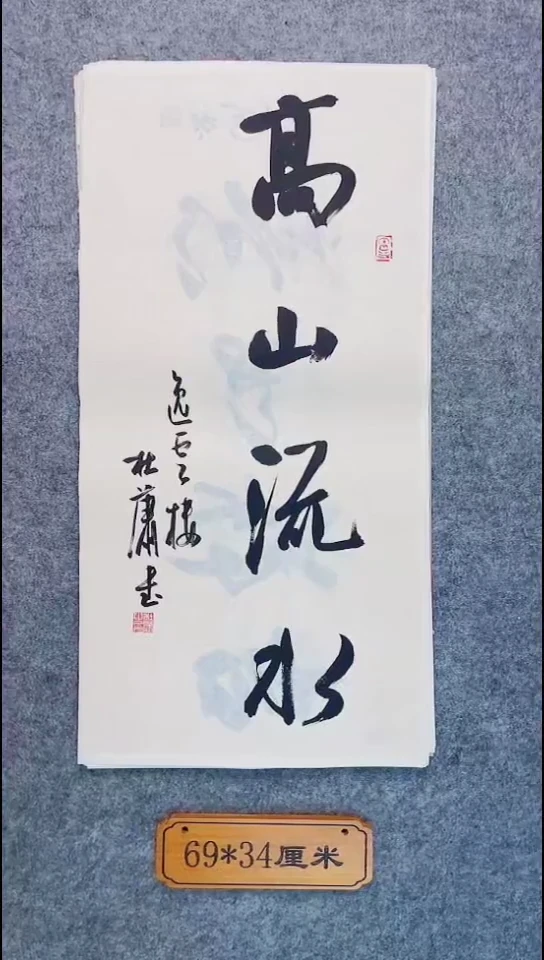 高山流水
逸云楼
杜萧书
69*34厘米